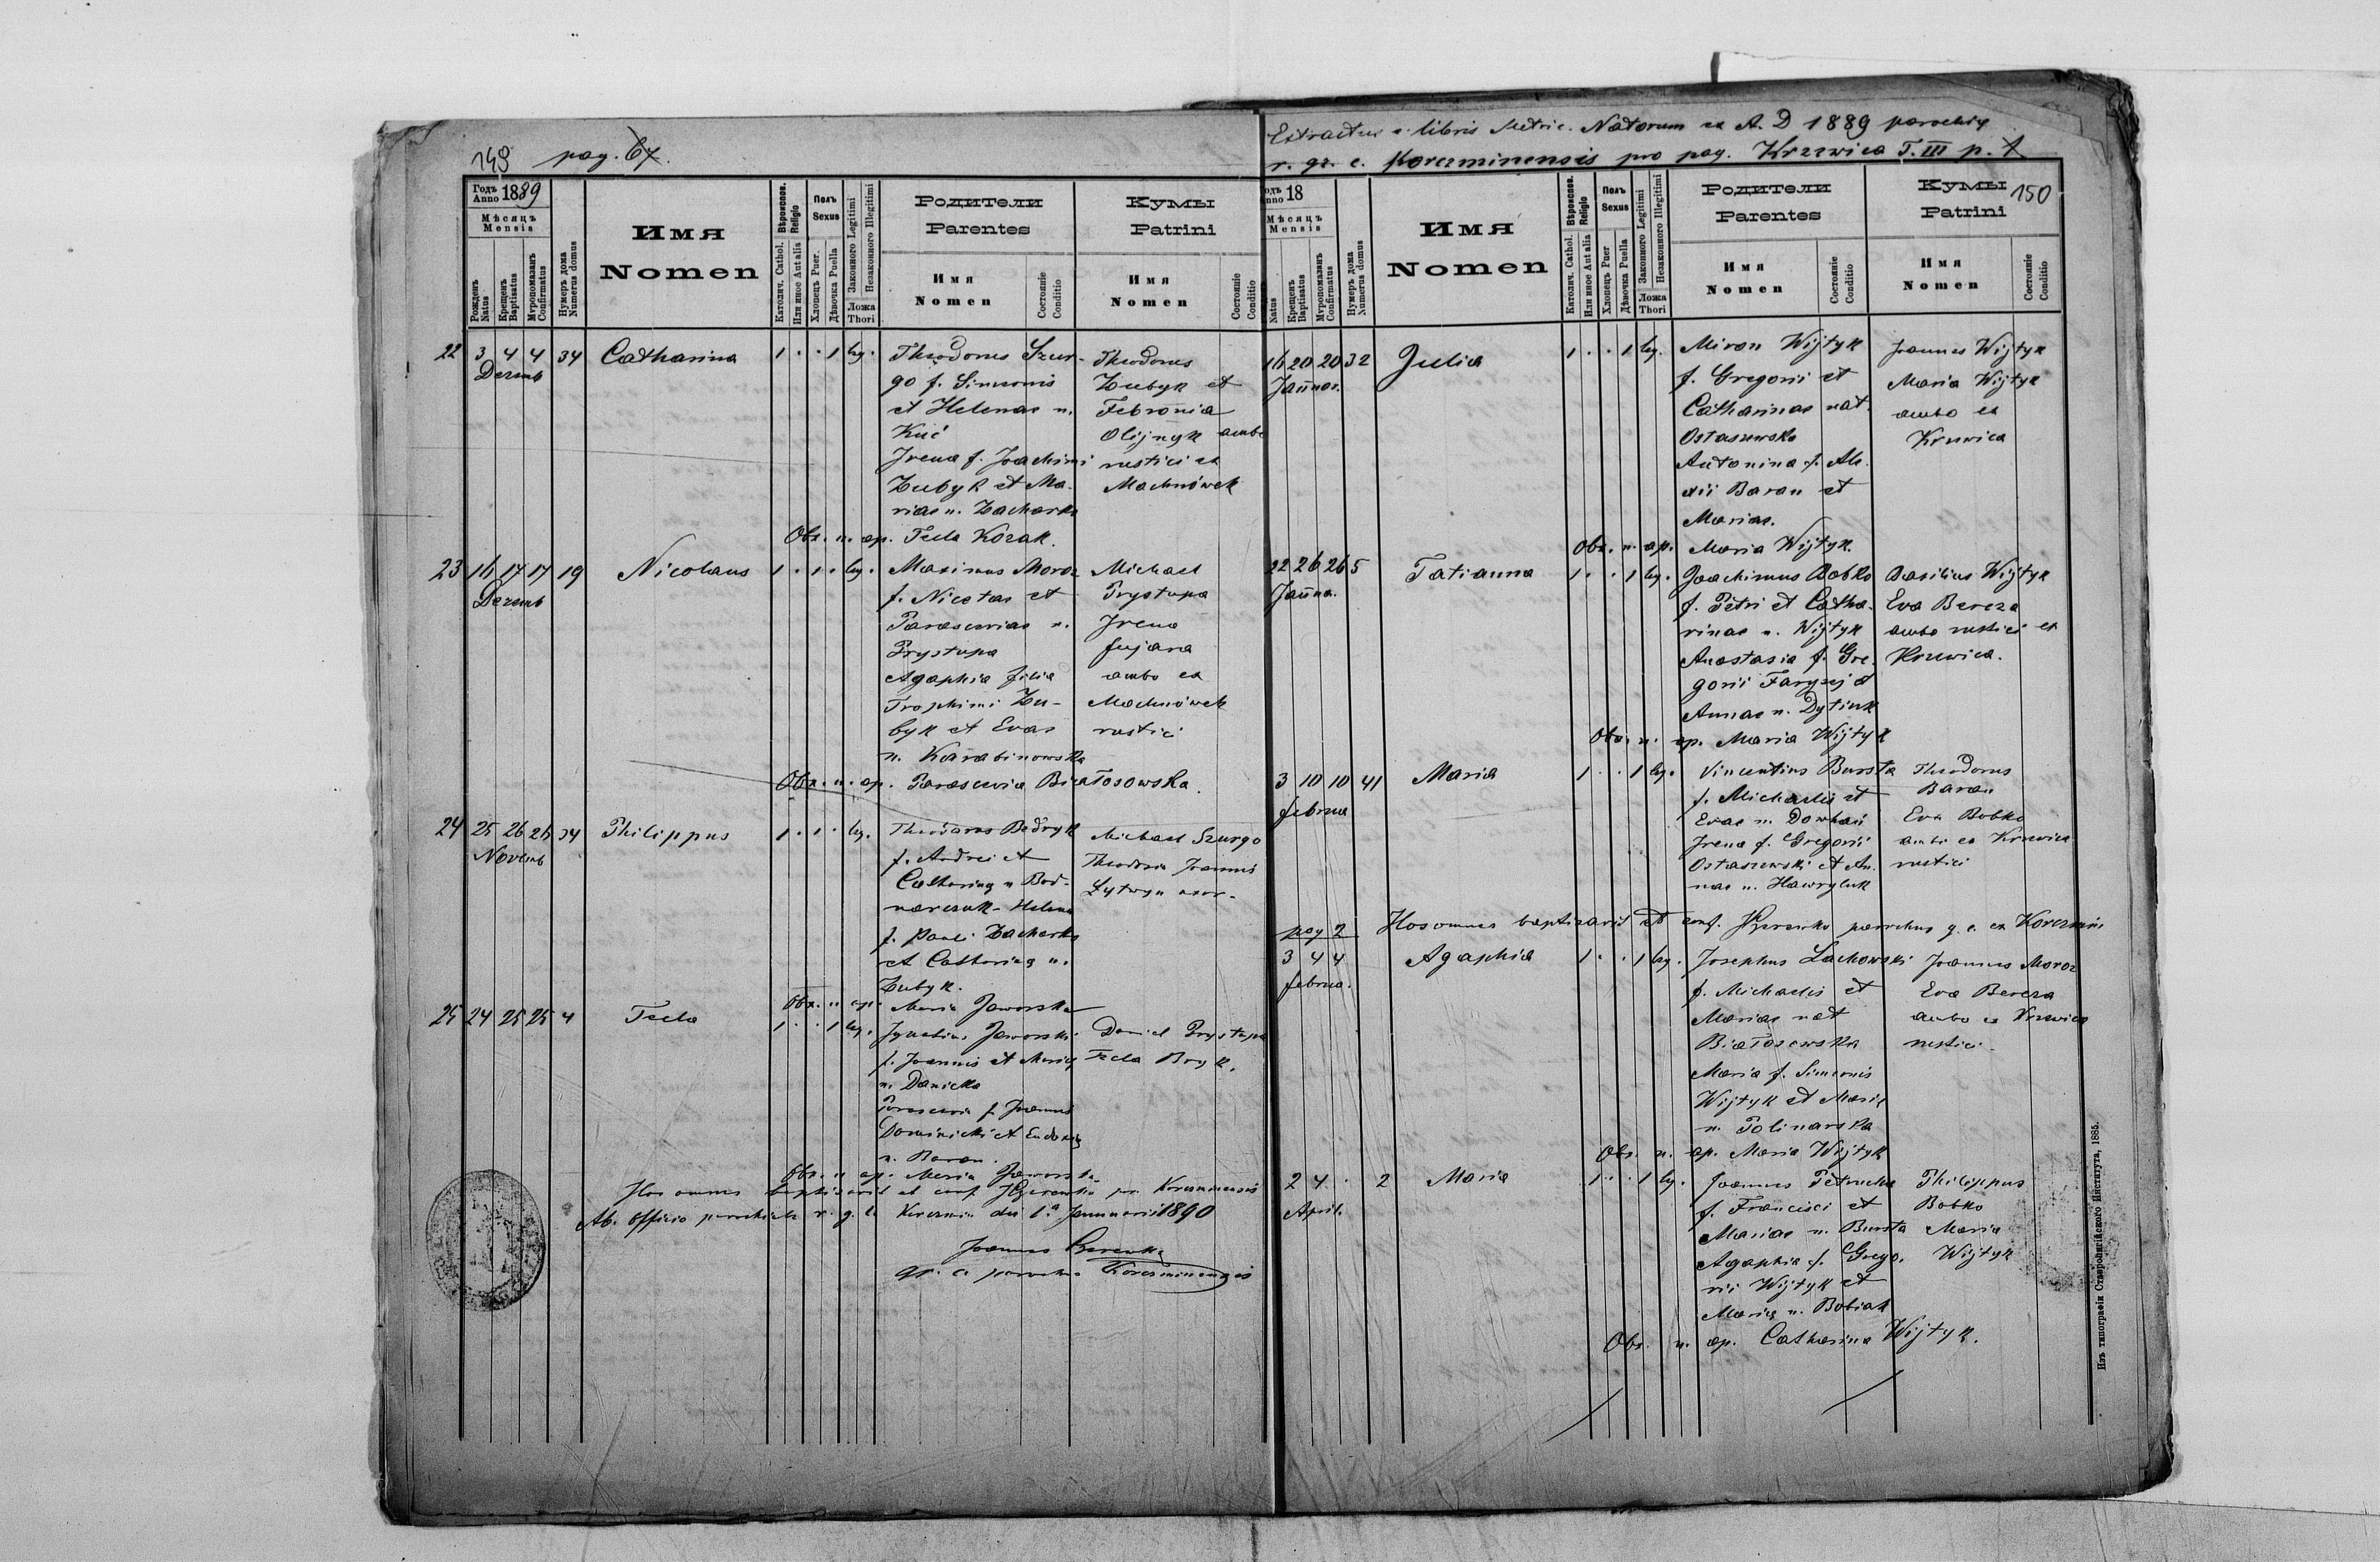 149 pag. 67.
Годъ Anno 1889
Мѣсяцъ
Mensis
Рожденъ Natus
Крещенъ Baptisatus
Муропомазанъ Confirmatus
Нумеръ дома Numerus domus
Имя
Nomen
Вѣроисповѣд. Religio
Католич. Cathol.
Или иное Aut alia
Полъ
Sexus
Хлопецъ Puer.
Дѣвочка Puella
Законного Legitimi
Незаконного Illegitimi
Ложа
Thori
Родители
Parentes
Имя
Nomen
Состоянiе Conditio
Кумы
Patrini
Имя
Nomen
Состоянiе Conditio
22 3 4 4 34 Catharina 1 . . 1 leg. Theodorus Szur- Theodorus
Dezemb go f. Simeonis Zubyk et
et Helenae n. Febronia
Kuć Olijnyk ambo
Irena f. Joachimi rustici ex
Zubyk et Ma- Machnówek
riae n. Zacharko
Obs. n. ap. Tecla Kozak.
23 16 17 17 19 Nicolaus 1 . 1 . leg. Maximus Moroz Michael
Dezemb f. Nicetae et Prystupa
Parasceviae n. Irena
Prystupa Fujara
Agaphia filia ambo ex
Trophimi Zu- Machnówek
byk et Evae rustici
n. Karabinowska
Obs. n. ap. Parascevia Białosowska.
24 25 26 26 34 Philippus 1 . 1 . leg. Theodorus Bedryk Michael Szurgo
Novemb f. Andrei et Theodosia Joannis
Catharinę n Bod- Łytwyn uxor-
narczuk - Helena
f. Pauli Zacharko
et Catharinę n.
Zubyk.
Obs. n ap. Maria Jaworska
25 24 25 25 4 Tecla 1 . . 1 leg. Ignatius Jaworski Daniel Prystupa
f. Joannis et Marię Tecla Bryk.
n. Danicka
Parascevia f. Joannis
Dominicki et Eudoxię
n. Baran.
Obs. n ap. Maria Jaworska
Hos omnes baptisavit et conf. JGerenko par. Korczminensis
Ab officio parochiali r. g. c. Korczmin die 1.a Januarii 1890
Joannes Gerenko
gr. c parochus Korczminensis
Extractus e libris Metric. Natorum ex A. D 1889 parochię
r. gr. c. Korczminensis pro pag. Krzewica T. III p. 1
150
Годъ Anno 18
Мѣсяцъ
Mensis
Natus
Крещенъ Baptisatus
Муропомазанъ Confirmatus
Нумеръ дома Numerus domus
Имя
Nomen
Вѣроисповѣд. Religio
Католич. Cathol.
Или иное Aut alia
Полъ
Sexus
Хлопецъ Puer
Дѣвочка Puella
Законного Legitimi
Незаконного Illegitimi
Ложа
Thori
Родители
Parentes
Имя
Nomen
Состоянiе Conditio
Кумы
Patrini
Имя
Nomen
Состоянiе Conditio
16 20 20 32 Julia 1 . . 1 leg. Miron Wijtyk Joannes Wijtyk
Januar. f. Gregorii et Maria Wijtyk
Catharinae nat. ambo ex
Ostaszewska Krzewica
Antonina f. Ale-
xii Baran et
Mariae.
Obs. n. ap. Maria Wijtyk.
22 26 26 5 Tatianna 1 . . 1 leg. Joachimus Bobko Basilius Wijtyk
Janua. f. Petri et Catha- Eva Bereza
rinae n. Wijtyk ambo rustici ex
Anastasia f. Gre- Krzewica.
gorii Faryzej et
Annae n. Dytiuk
Obs. n. ap. Maria Wijtyk
3 10 10 41 Maria 1 . . 1 leg. Vincentius Bursta Theodorus
Februa f. Michaelis et Baran
Evae n. Dowhań Eva Bobko
Irena f. Gregorii ambo ex Krzewica
Ostaszewski et An- rustici
nae n. Hawryluk
Hos omnes baptizavit et conf. JGerenko parochus g. c. ex Korczmin
pag 2
3 4 4 Agaphia 1 . . 1 leg. Josephus Lachowski Joannes Moroz
Februa. f. Michaelis et Eva Bereza
Mariae nat ambo ex Krzewica
Białosewska rustici.
Maria f. Simeonis
Wijtyk et Marię
n. Polinarska
Obs. n. ap. Maria Wijtyk
2 4 . 2 Maria 1 . . 1 leg. Joannes Petrucha Philippus
April. f. Francisci et Bobko
Mariae n. Bursta Maria
Agaphia f. Grego- Wijtyk
rii Wijtyk et
Marię n. Bobiak
Obs. n. ap. Catharina Wijtyk.
Изъ типографiи Ставропигiйского Института, 1885.